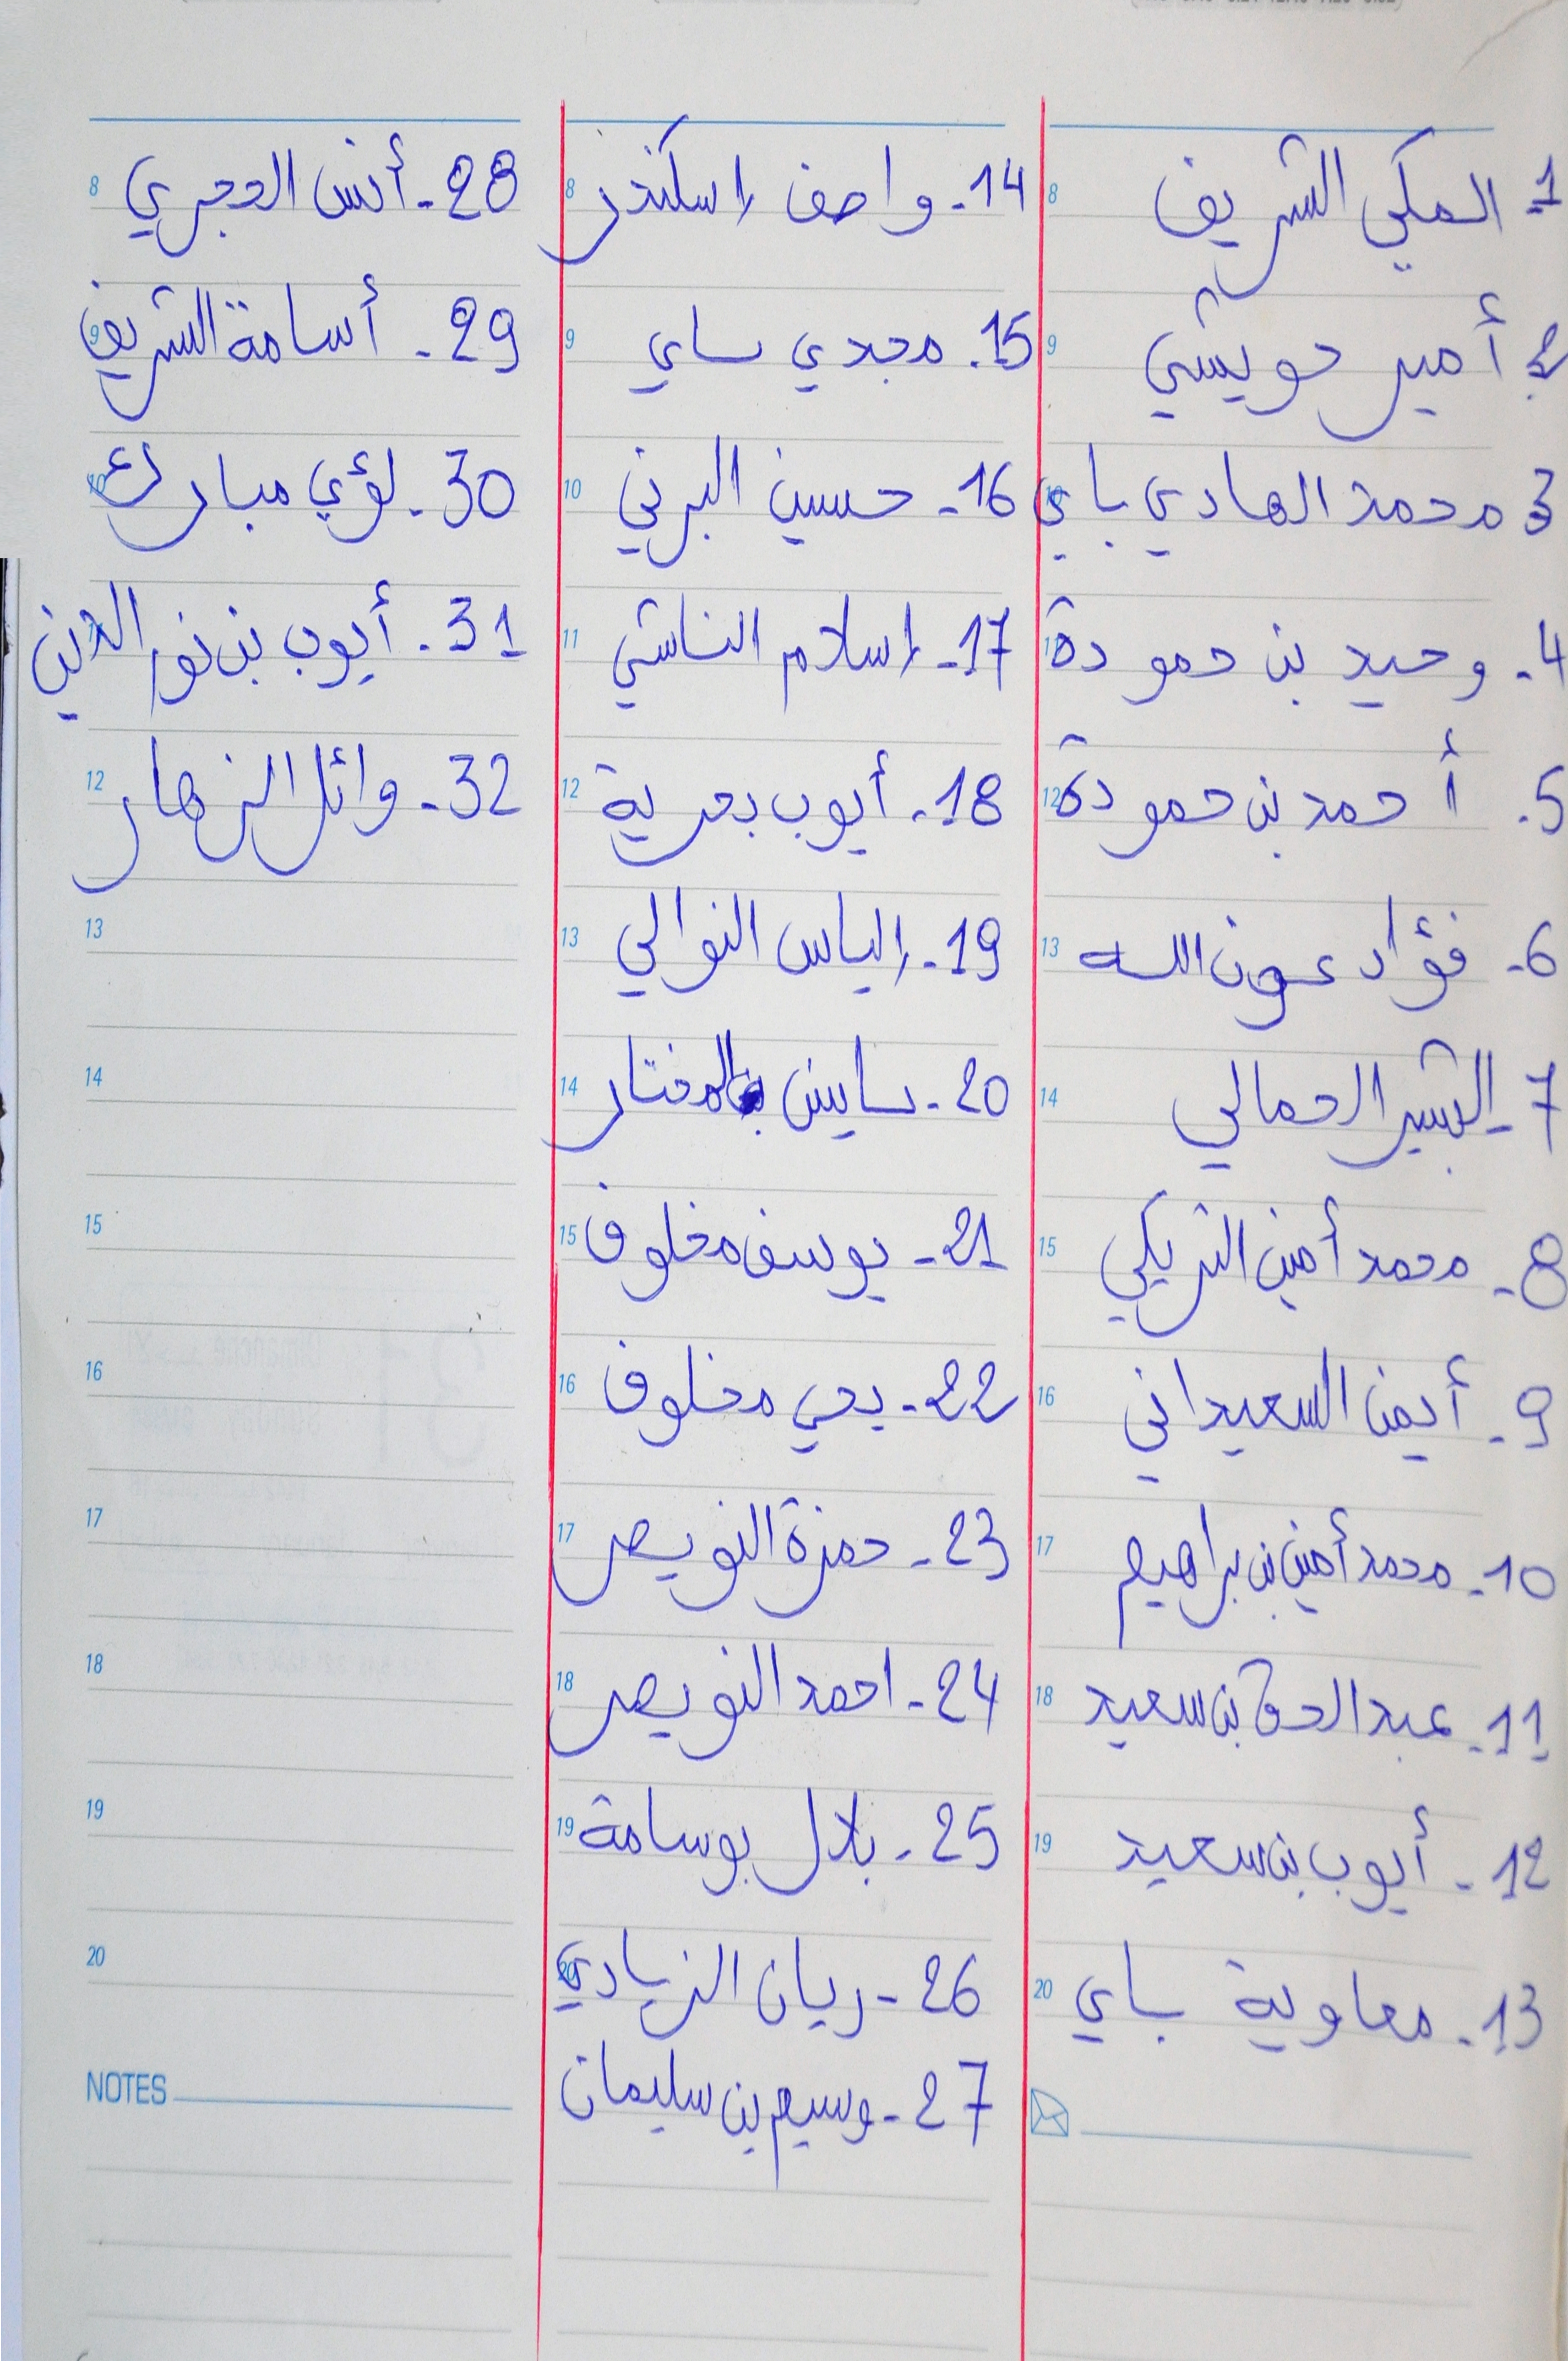 1- المكي الشريف
2- أمير حويشي
3 محمد الهادي باي
4- وحيد بن حمودة
5. أحمد بن حمودة
6- فؤاد عون الله
7- البشير الجمالي
8- محمد أمين التريكي
9- أيمن السعيداني
10- محمد أمين بن براهيم
11- عبد الحق بن سعيد
12- أيوب بن سعيد
13- معاوية باي
14- واصف اسكندر
15. مجدي ساي
16- حسين البرني
17- إسلام الناشي
18- أيوب بحرية
19- إلياس النوالي
20- ياسين المختار
21- يوسف مخلوف
22- يحي مخلوف
23- حمزة النويصر
24- احمد النويصر
25- بلال بوسامة
26- ريان الزيادي
27- وسيم بن سليمان
28- أنس الحجري
29- أسامة الشريف
30- لؤي مبارك
31- أيوب بن نور الدين
32- وائل الزهار
8
9
11
12
13
14
15
16
17
18
19
20
NOTES